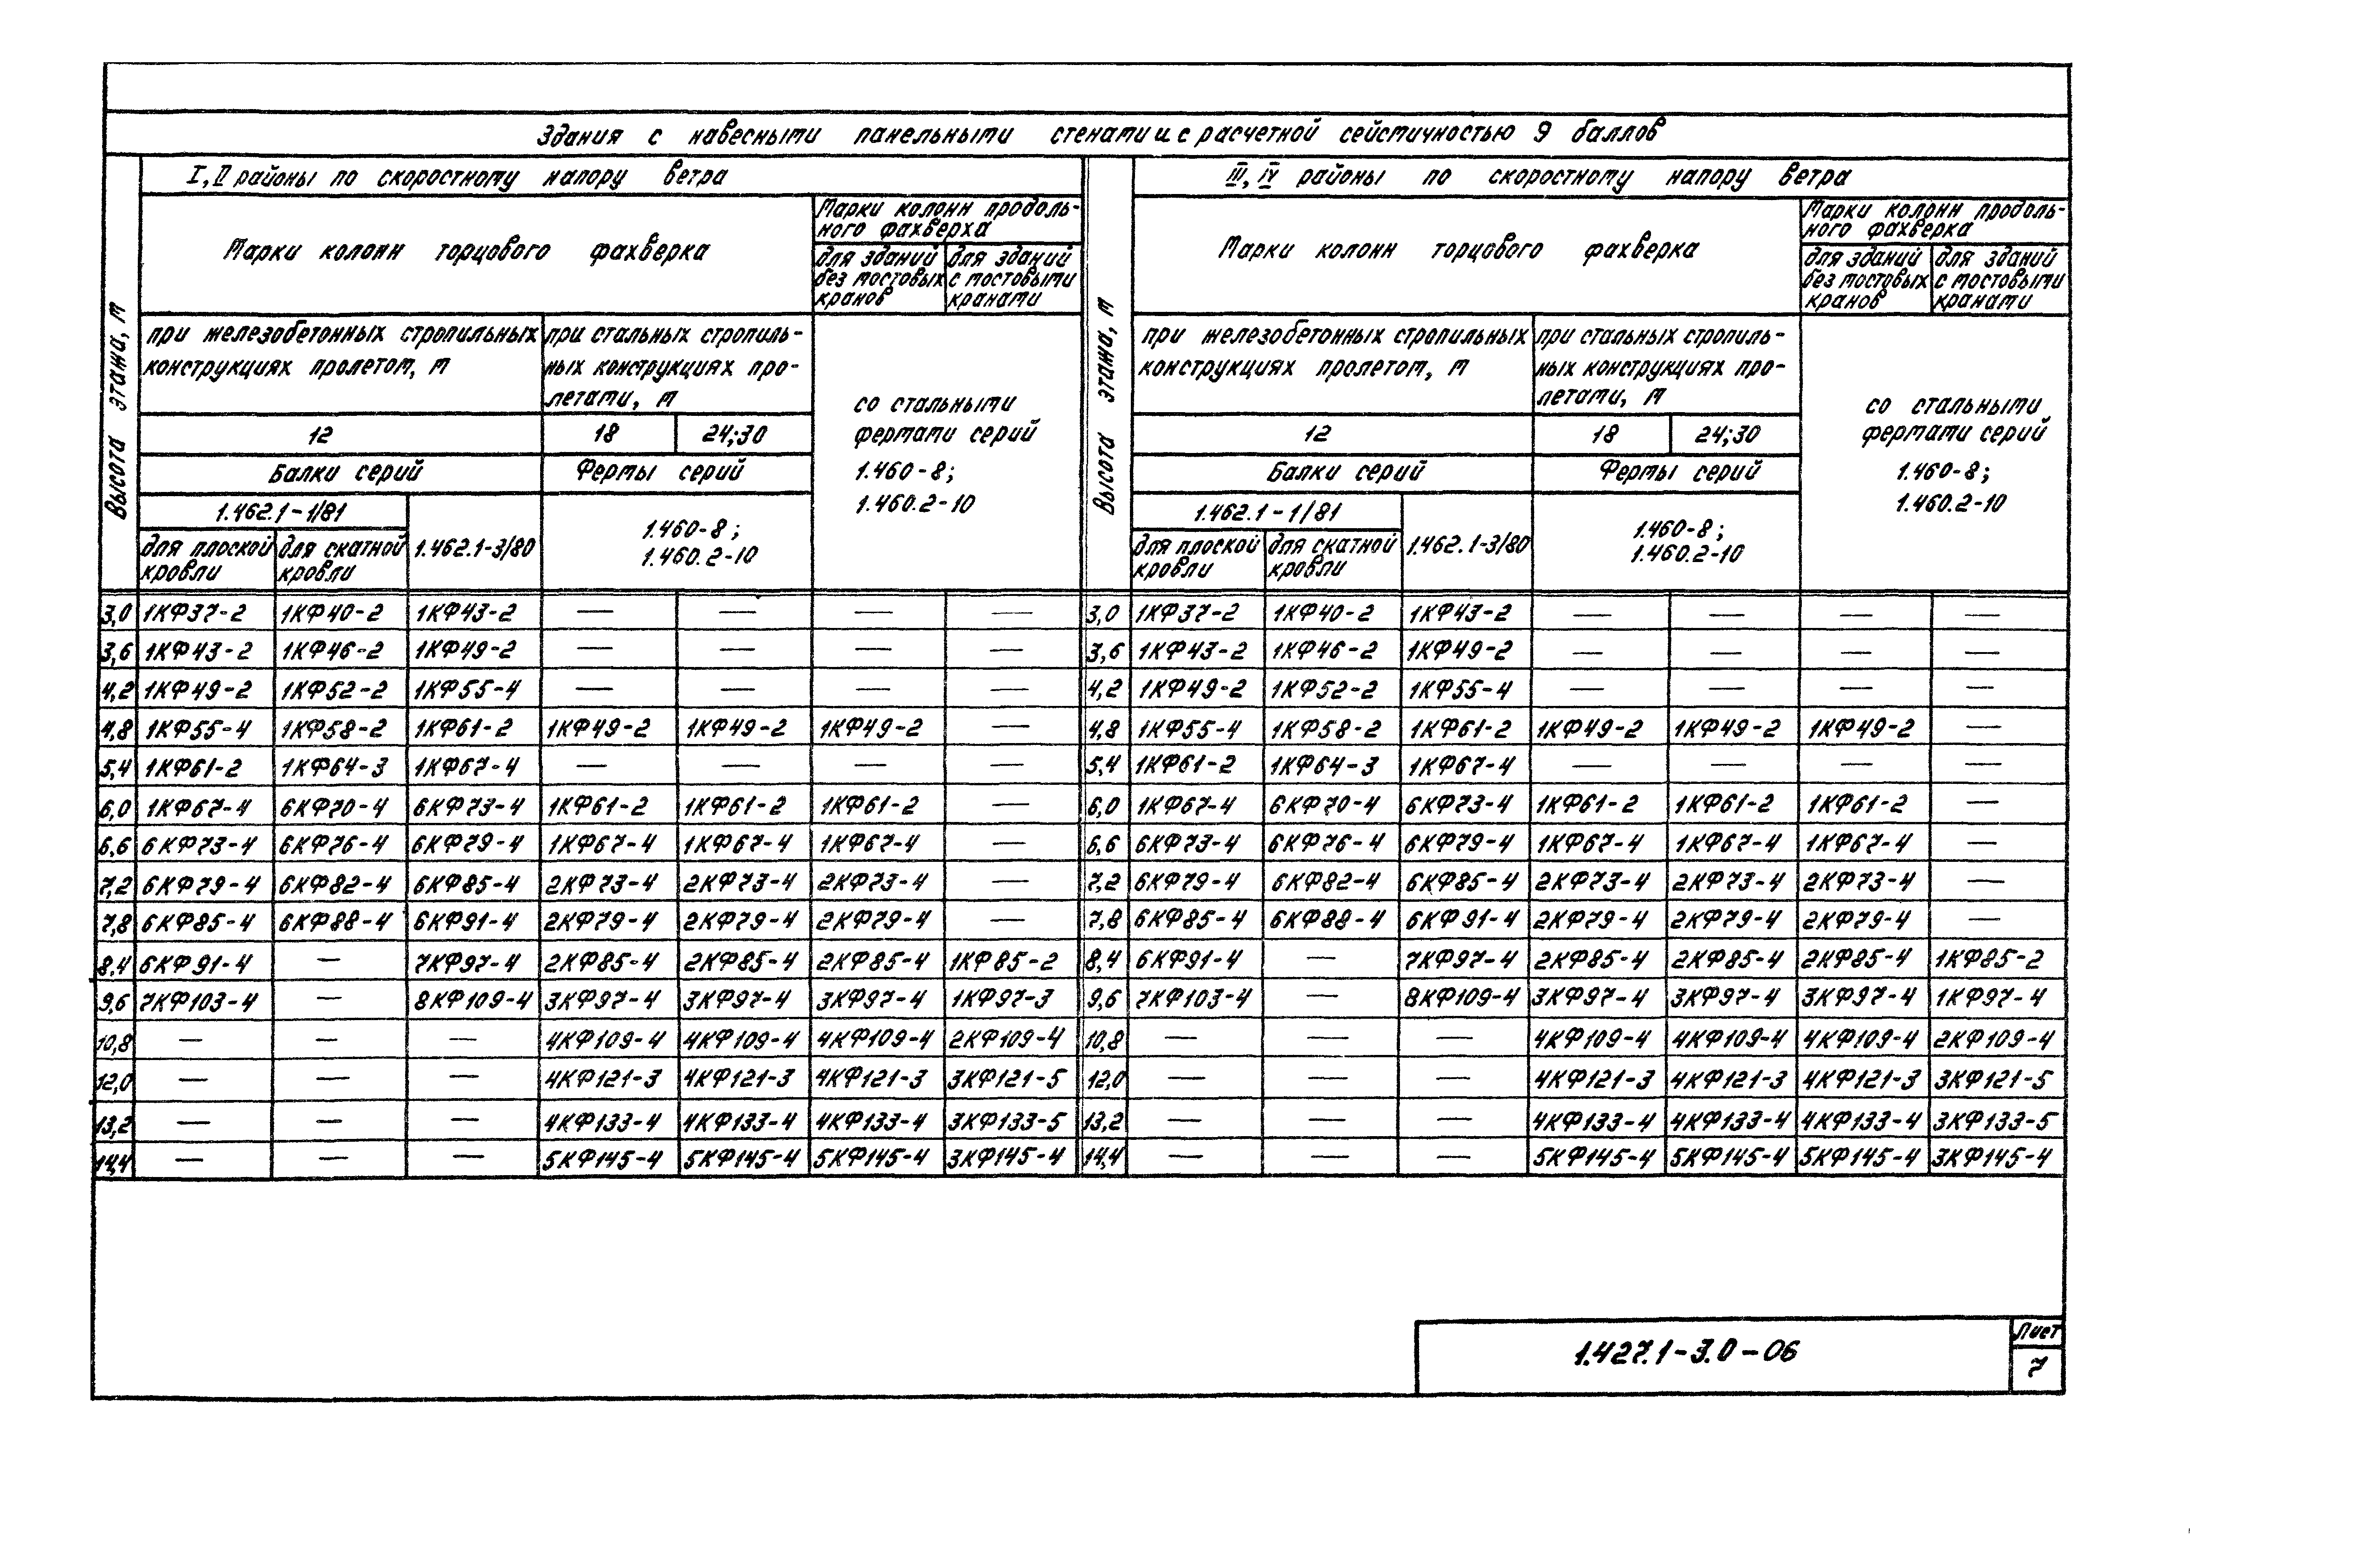 Здания с навесными панельными стенами и с расчетной сейсмичностью 9 баллов
Высота этажа, м
I, II районы по скоростному напору ветра
Марки колонн торцового фахверка
Марки колонн продоль-
ного фахверка
для зданий без мостовых кранов
для зданий с мостовыми кранами
при железобетонных стропильных
конструкциях пролетом, м
при стальных стропиль-
ных конструкциях про-
летами, м
12
18
24;30
Балки серий
Фермы серий
1.462.1-1/81
для плоской кровли
для скатной кровли
1.462.1-3/80
1.460-8;
1.460.2-10
со стальными
фермами серий
1.460-8;
1.460.2-10
Высота этажа, м
III, IV районы по скоростному напору ветра
Марки колонн торцового фахверка
Марки колонн продоль-
ного фахверка
для зданий без мостовых кранов
для зданий с мостовыми кранами
при железобетонных стропильных
конструкциях пролетом, м
при стальных стропиль-
ных конструкциях про-
летами, м
12
18
24;30
Балки серий
Фермы серий
1.462.1-1/81
для плоской кровли
для скатной кровли
1.462.1-3/80
1.460-8;
1.460.2-10
со стальными
фермами серий
1.460-8;
1.460.2-10
3,0 1КФ37-2 1КФ40-2 1КФ43-2 — — — — 3,0 1КФ37-2 1КФ40-2 1КФ43-2 — — — —
3,6 1КФ43-2 1КФ46-2 1КФ49-2 — — — — 3,6 1КФ43-2 1КФ46-2 1КФ49-2 — — — —
4,2 1КФ49-2 1КФ52-2 1КФ55-4 — — — — 4,2 1КФ49-2 1КФ52-2 1КФ55-4 — — — —
4,8 1КФ55-4 1КФ58-2 1КФ61-2 1КФ49-2 1КФ49-2 1КФ49-2 — 4,8 1КФ55-4 1КФ58-2 1КФ61-2 1КФ49-2 1КФ49-2 1КФ49-2 —
5,4 1КФ61-2 1КФ64-3 1КФ67-4 — — — — 5,4 1КФ61-2 1КФ64-3 1КФ67-4 — — — —
6,0 1КФ67-4 6КФ70-4 6КФ73-4 1КФ61-2 1КФ61-2 1КФ61-2 — 6,0 1КФ67-4 6КФ70-4 6КФ73-4 1КФ61-2 1КФ61-2 1КФ61-2 —
6,6 6КФ73-4 6КФ76-4 6КФ79-4 1КФ67-4 1КФ67-4 1КФ67-4 — 6,6 6КФ73-4 6КФ76-4 6КФ79-4 1КФ67-4 1КФ67-4 1КФ67-4 —
7,2 6КФ79-4 6КФ82-4 6КФ85-4 2КФ73-4 2КФ73-4 2КФ73-4 — 7,2 6КФ79-4 6КФ82-4 6КФ85-4 2КФ73-4 2КФ73-4 2КФ73-4 —
7,8 6КФ85-4 6КФ88-4 6КФ91-4 2КФ79-4 2КФ79-4 2КФ79-4 — 7,8 6КФ85-4 6КФ88-4 6КФ91-4 2КФ79-4 2КФ79-4 2КФ79-4 —
8,4 6КФ91-4 — 7КФ97-4 2КФ85-4 2КФ85-4 2КФ85-4 1КФ85-2 8,4 6КФ91-4 — 7КФ97-4 2КФ85-4 2КФ85-4 2КФ85-4 1КФ85-2
9,6 7КФ103-4 — 8КФ109-4 3КФ97-4 3КФ97-4 3КФ97-4 1КФ97-3 9,6 7КФ103-4 — 8КФ109-4 3КФ97-4 3КФ97-4 3КФ97-4 1КФ97-4
10,8 — — — 4КФ109-4 4КФ109-4 4КФ109-4 2КФ109-4 10,8 — — — 4КФ109-4 4КФ109-4 4КФ109-4 2КФ109-4
12,0 — — — 4КФ121-3 4КФ121-3 4КФ121-3 3КФ121-5 12,0 — — — 4КФ121-3 4КФ121-3 4КФ121-3 3КФ121-5
13,2 — — — 4КФ133-4 4КФ133-4 4КФ133-4 3КФ133-5 13,2 — — — 4КФ133-4 4КФ133-4 4КФ133-4 3КФ133-5
14,4 — — — 5КФ145-4 5КФ145-4 5КФ145-4 3КФ145-4 14,4 — — — 5КФ145-4 5КФ145-4 5КФ145-4 3КФ145-4
1.427.1-3.0-06
Лист
7